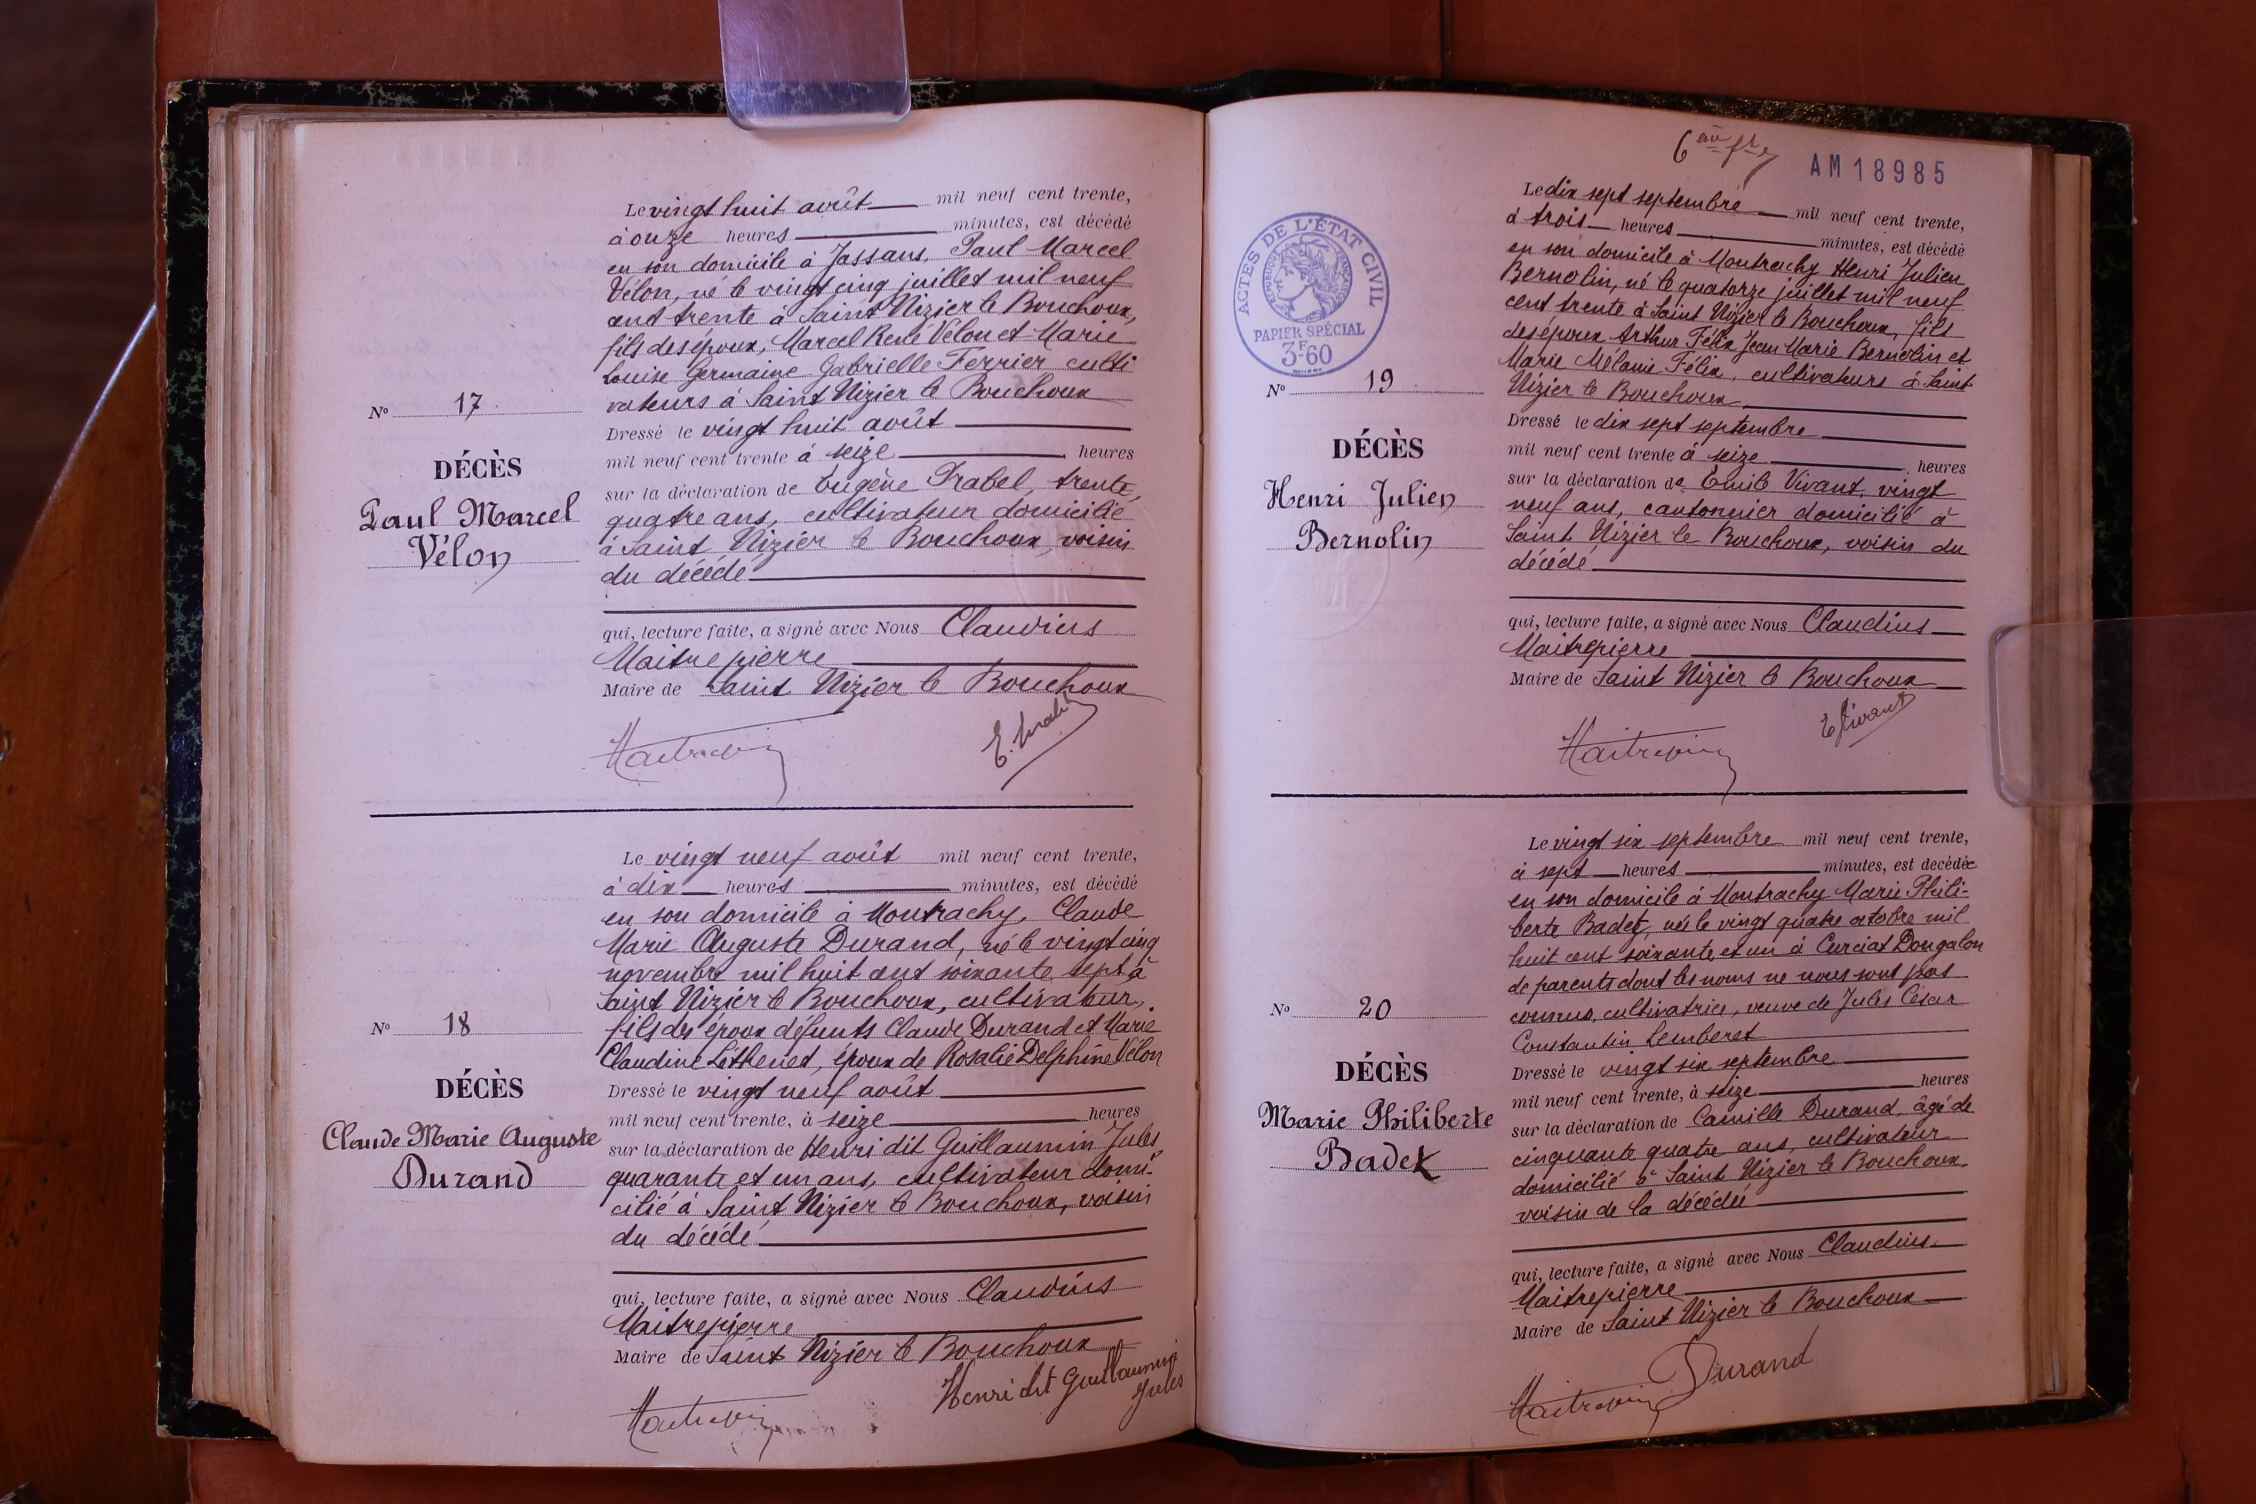 Le vingt huit août mil neuf cent trente,
à onze heures minutes, est décédé
en son domicile à Jassans, Paul Marcel
Vélon, né le vingt cinq juillet mil neuf
cent trente à Saint Nizier le Bouchoux,
fils des époux, Marcel René Vélon et Marie
Louise Germaine Gabrielle Ferrier culti
vateurs à Saint Nizier le Bouchoux
Nº 17
DÉCÈS
Paul Marcel
Vélon
Dressé le vingt huit août
mil neuf cent trente à seize heures
sur la déclaration de Eugène Trabel, trente
quatre ans, cultivateur domicilié
à Saint Nizier le Bouchoux, voisin
du décédé
qui, lecture faite, a signé avec Nous Claudius
Maitrepierre
Maire de Saint Nizier le Bouchoux
Le vingt neuf août mil neuf cent trente,
à dix heures minutes, est décédé
en son domicile à Montrachy, Claude
Marie Auguste Durand, né le vingt cinq
novembre mil huit cent soixante sept à
Saint Nizier le Bouchoux, cultivateur,
fils des époux défunts Claude Durand et Marie
Claudine Léthenet, époux de Rosalie Delphine Vélon
Nº 18
DÉCÈS
Claude Marie Auguste
Durand
Dressé le vingt neuf août
mil neuf cent trente, à seize heures
sur la déclaration de Henri dit Guillaumin Jules,
quarante et un ans, cultivateur domi-
cilié à Saint Nizier le Bouchoux, voisin
du décédé
qui, lecture faite, a signé avec Nous Claudius
Maitrepierre
Maire de Saint Nizier le Bouchoux
Henri dit Guillaumin
Jules
AM 18985
ACTES DE L'ÉTAT CIVIL
PAPIER SPÉCIAL
3F60
Le dix sept septembre mil neuf cent trente,
à trois heures minutes, est décédé
en son domicile à Montrachy Henri Julien
Bernolin, né le quatorze juillet mil neuf
cent trente à Saint Nizier le Bouchoux, fils
des époux Arthur Félix Jean Marie Bernolin et
Marie Mélanie Félix, cultivateurs à Saint
Nizier le Bouchoux
Nº 19
DÉCÈS
Henri Julien
Bernolin
Dressé le dix sept septembre
mil neuf cent trente à seize heures
sur la déclaration de Emile Vivant, vingt
neuf ans, cantonnier domicilié à
Saint Nizier le Bouchoux, voisin du
décédé
qui, lecture faite, a signé avec Nous Claudius
Maitrepierre
Maire de Saint Nizier le Bouchoux
E Vivant
Le vingt six septembre mil neuf cent trente,
à sept heures minutes, est decédée
en son domicile à Montrachy Marie Phili-
berte Badet, née le vingt quatre octobre mil
huit cent soixante et un à Curciat Dongalon
de parents dont les noms ne nous sont pas
connus, cultivatrice, veuve de Jules César
Constantin Lemberet
Nº 20
DÉCÈS
Marie Philiberte
Badet
Dressé le vingt six septembre
mil neuf cent trente, à seize heures
sur la déclaration de Camille Durand, âgé de
cinquante quatre ans, cultivateur
domicilié à Saint Nizier le Bouchoux
voisin de la décédée
qui, lecture faite, a signé avec Nous Claudius
Maitrepierre
Maire de Saint Nizier le Bouchoux
Durand